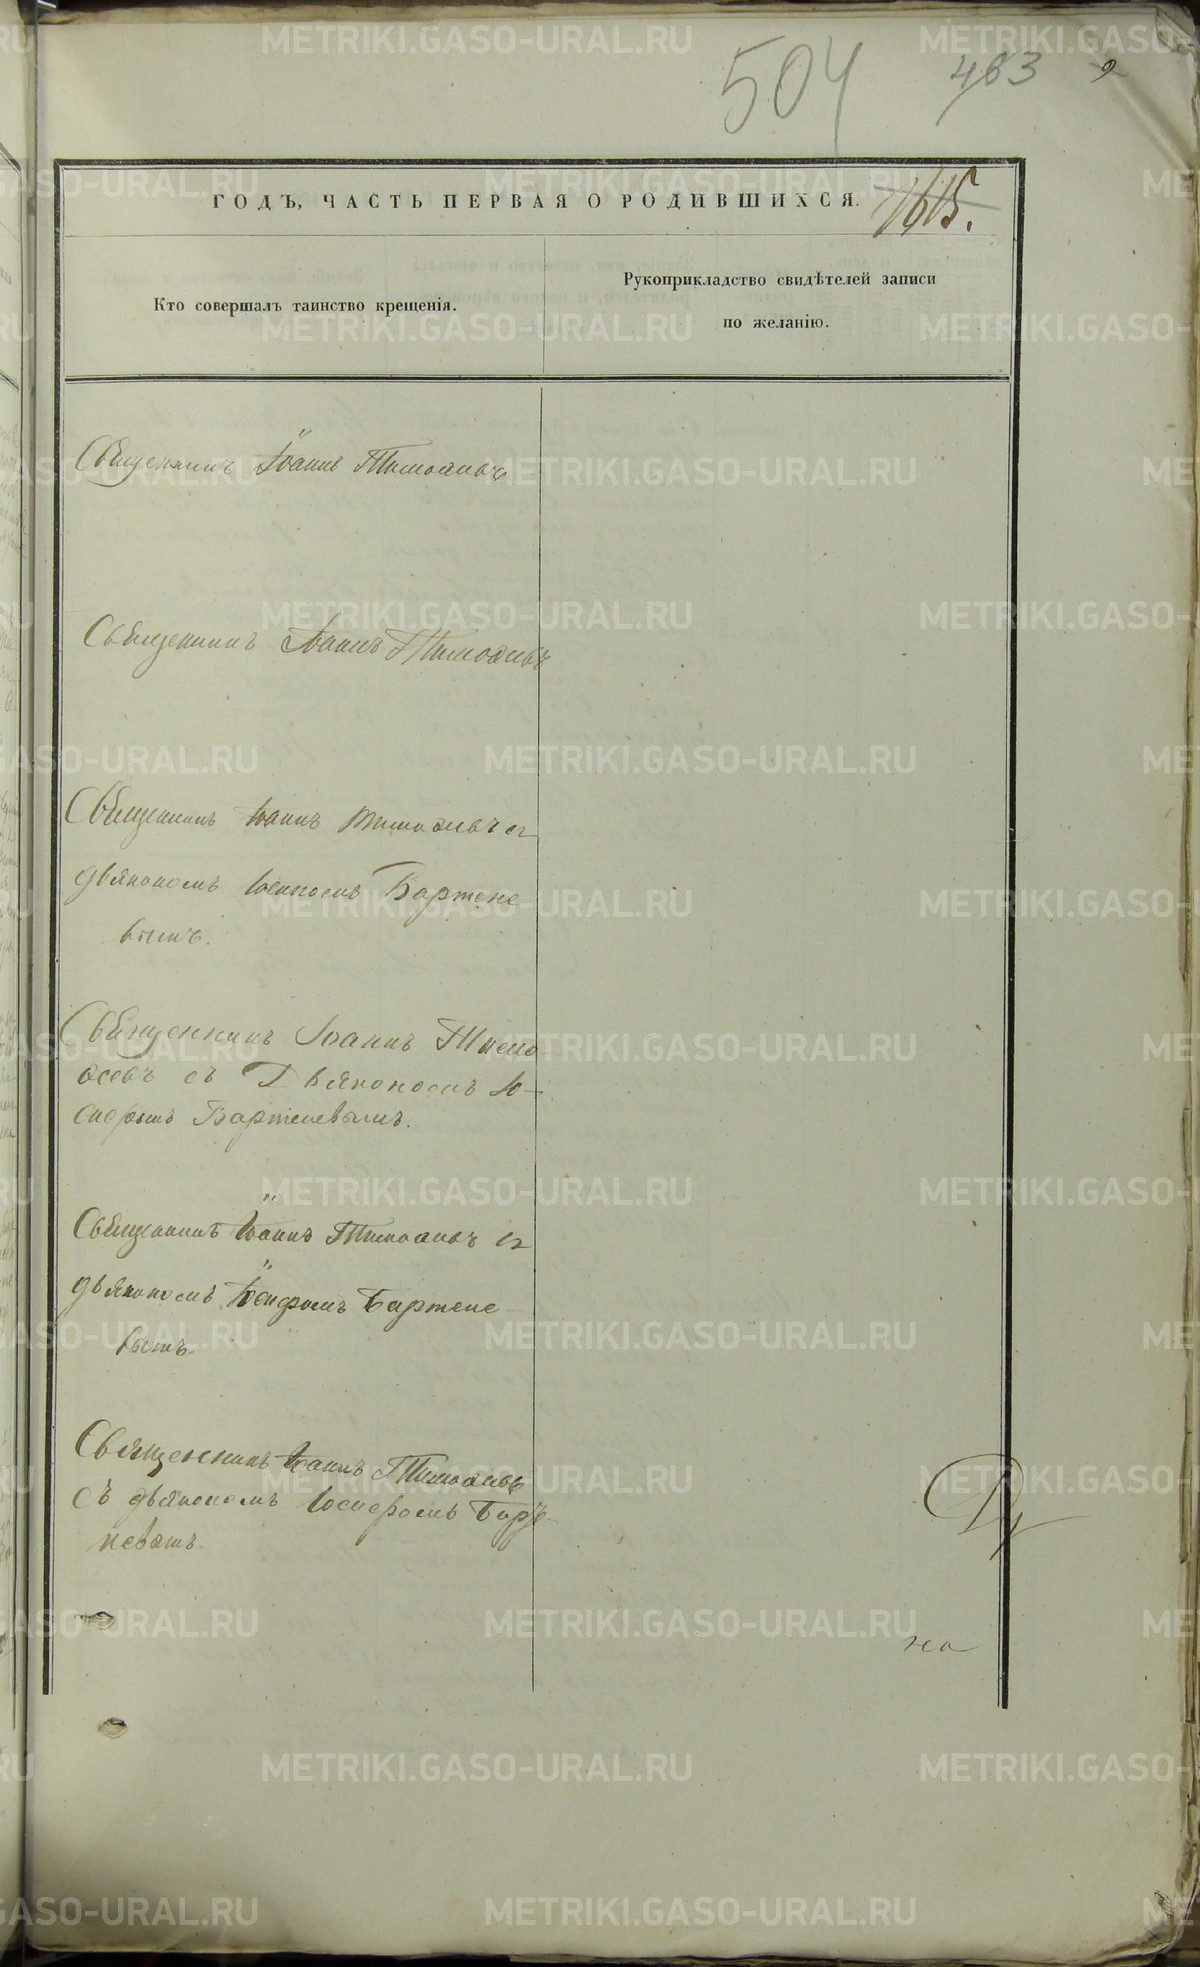 504 463 9
ГОДЪ, ЧАСТЬ ПЕРВАЯ О РОДИВШИХСЯ. 1615.
Кто совершалъ таинство крещенія.
Рукоприкладство свидѣтелей записи
по желанію.
Священникъ Іоаннъ Тимоѳеевъ
Священникъ Іоаннъ Тимоѳеевъ
Священникъ Іоаннъ Тимоѳеевъ съ
дьякономъ Іосифомъ Бартене
вымъ.
Священникъ Іоаннъ Тимо
ѳеевъ съ Дьякономъ Іо-
сифомъ Бартеневымъ.
Священникъ Іоаннъ Тимоѳеевъ съ
дьякономъ Іосифомъ Бартене-
вымъ
Священникъ Іоаннъ Тимоѳеевъ
съ дьякономъ Іосифомъ Барте-
невымъ.
на
METRIKI.GASO-URAL.RU